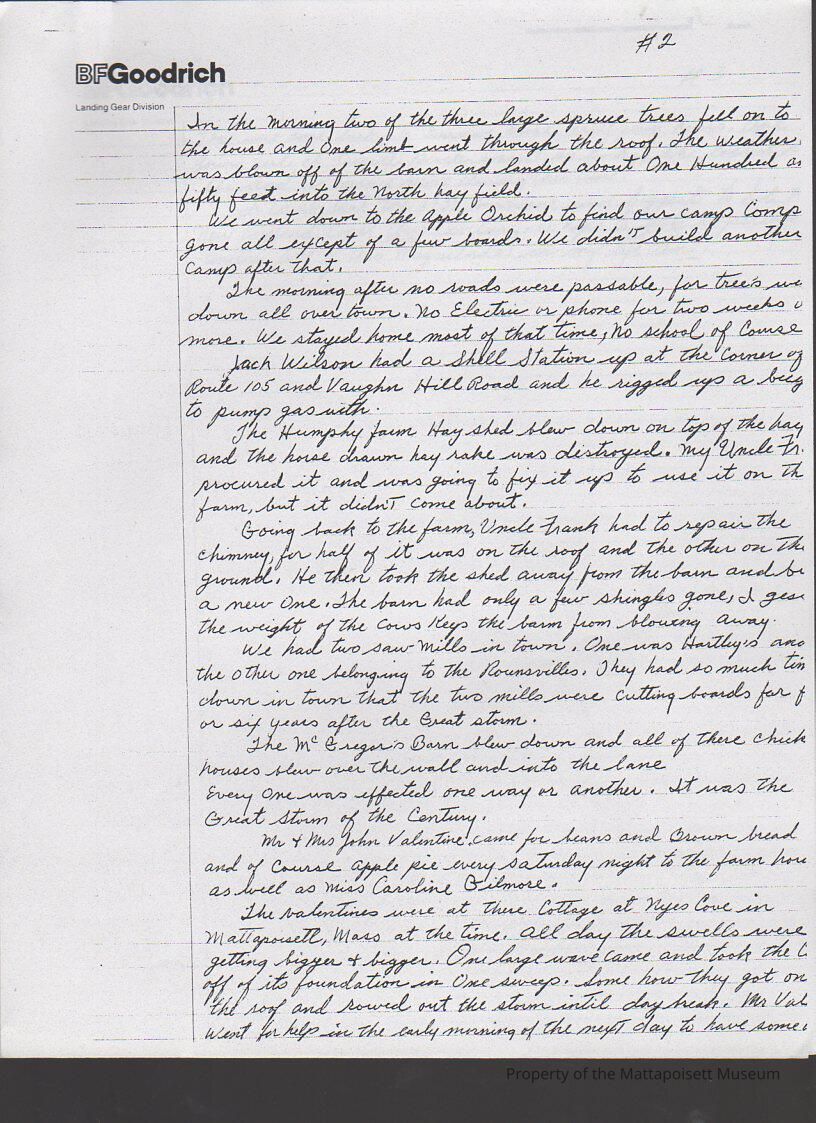 #2
BFGoodrich
Landing Gear Division
In the morning two of the three large spruce trees fell on to
the house and one limb went through the roof. The weather
was blown off of the barn and landed about One Hundred a
fifty feet into the North hay field.
We went down to the Apple Orchid to find our camp Comp
gone all except of a few boards. We didn't build another
camp after that.
The morning after no roads were passable, for tree's we
down all over town. No Electric or phone for two weeks o
more. We stayed home most of that time, No school of Course
Jack Wilson had a Shell Station up at the Corner of
Route 105 and Vaughn Hill Road and he rigged up a
to pump gas with.
The Humphy farm Hay shed blew down on top of the hay
and the horse drawn hay rake was distroyed. My Uncle Fr
procured it and was going to fix it up to use it on th
farm, but it didn't come about.
Going back to the farm, Uncle Frank had to repair the
chimney, for half of it was on the roof and the other on the
ground. He then took the shed away from the barn and bu
a new one. The barn had only a few shingles gone, I gess
the weight of the Cows Keps the barm from blowing away.
We had two saw Mills in town. One was Hartley's and
the other one belonging to the Rounsvilles. They had so much tim
down in town that the two mills were cutting boards for f
or six years after the Great storm.
The McGregor's Barn blew down and all of there Chick
houses blew over the wall and into the lane
Every One was effected one way or another. It was the
Great Storm of the Century.
Mr & Mrs John Valentine came for beans and Brown bread
and of Course Apple pie every Saturday night to the farm hou
as well as Miss Caroline Gilmore.
The Valentines were at there Cottage at Nyes Cove in
Mattapoisett, Mass at the time. All day the swells were
getting bigger & bigger. One large wave came and took the C
off of its foundation in One sweep. Some how they got on
the roof and rowed out the storm intil day break. Mr Val
went for help in the early morning of the next day to have some
Property of the Mattapoisett Museum